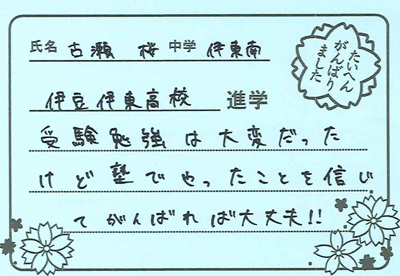 氏名 古瀬 桜 中学 伊東南
たいへん
がんばり
ました
伊豆伊東高校 進学
受験勉強は大変だった
けど塾でやったことを信じ
てがんばれば大丈夫!!